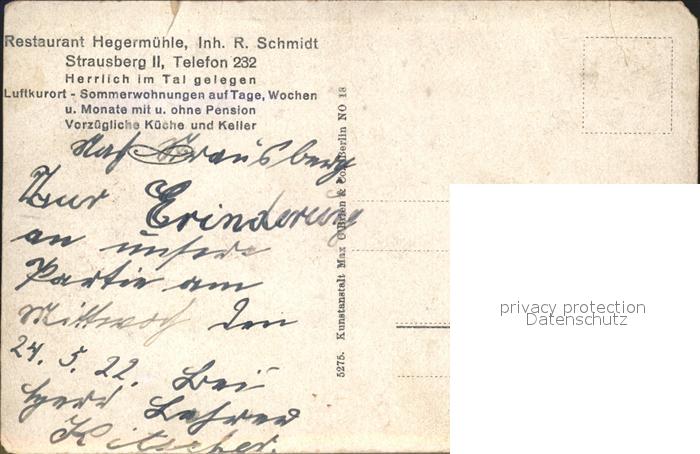 Restaurant Hegermühle, Inh. R. Schmidt
Strausberg II, Telefon 232
Herrlich im Tal gelegen
Luftkurort - Sommerwohnungen auf Tage, Wochen
u. Monate mit u. ohne Pension
Vorzügliche Küche und Keller
Strausberg
Zur Erinderung
an unsere
Partie am
Mittwoch den
24. 5. 22. Bei
Herr Lehrer
5275. Kunstanstalt Max O'Brien & Co., Berlin NO 18
privacy protection
Datenschutz